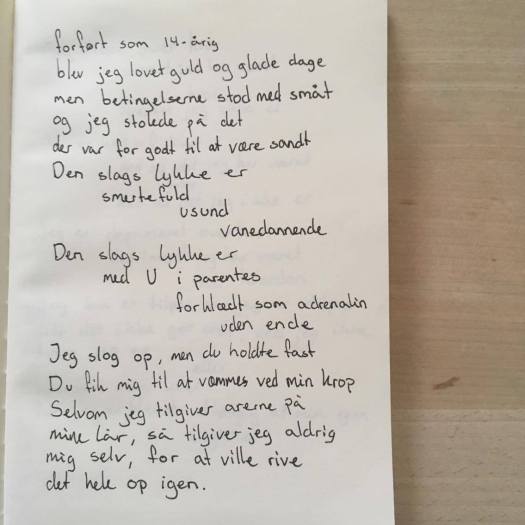 forført som 14-årig
blev jeg lovet guld og glade dage
men betingelserne stod med småt
og jeg stolede på det
der var for godt til at være sandt
Den slags lykke er
smertefuld
usund
vanedannende
Den slags lykke er
med U i parentes
forklædt som adrenalin
uden ende
Jeg slog op, men du holdte fast
Du fik mig til at væmmes ved min krop
Selvom jeg tilgiver arerne på
mine lår, så tilgiver jeg aldrig
mig selv, for at ville rive
det hele op igen.